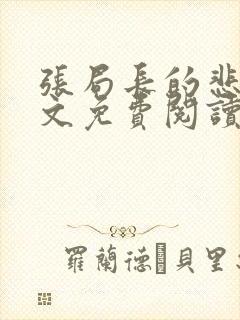 張局長的悲
文免費閱讀
羅蘭德 貝里